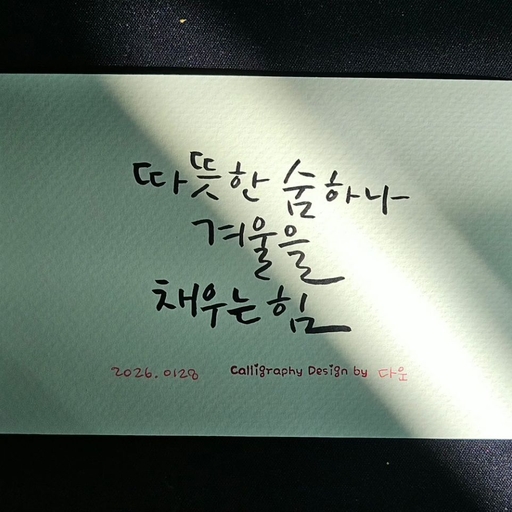 따뜻한 숨하나
겨울을
채우는힘
2026.0128 Calligraphy Design by 다운